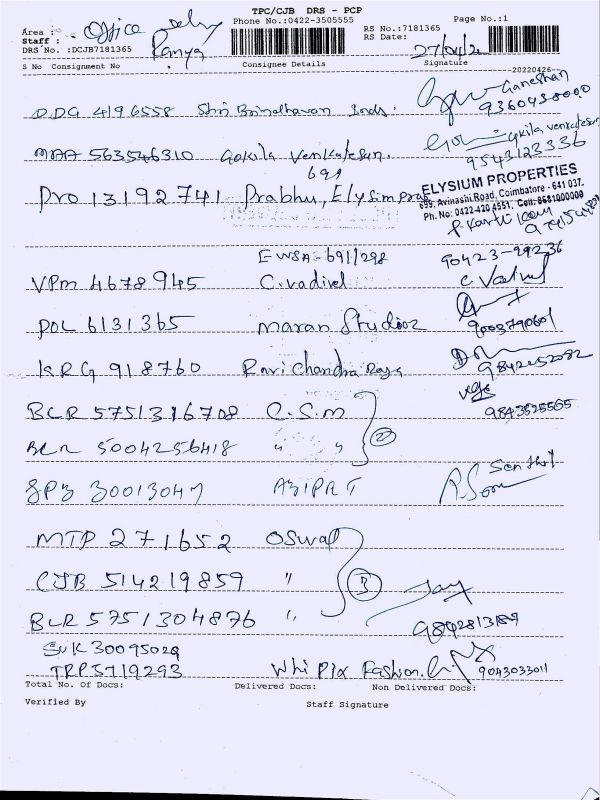 TPC/CJB DRS - PCP
Phone No.:0422-3505555
Page No.:1
Area : Office Delry
RS No.:7181365
Staff : Ramya
RS Date: 27/04/2
DRS No. :DCJB7181365
S No Consignment No Consignee Details Signature
20220426
Ganeshan
DDG 4196558 Shri Brindhavan Inds.
9360438000
MAA 563546310 Gokila Venkatesan. Gokila venkatesan
9543123336
691
PRO 13192741 Prabhu, Elysim Prop
ELYSIUM PROPERTIES
695, Avinashi Road, Coimbatore - 641 037.
Ph. No: 0422-420 4551, Cell: 8681000000
EWSA-691/298 90423-99236
VPM 4678945 C.vadivel C. Vadivel
POL 6131365 maran Studioz 9003790601
KRG 918760 Ravi Chandra Raja 9842252032
BLR 5751316708 C.S.M 9843525565
BLR 5004256418 " " 2
Senthil
30013047
MTP 271652 Oswal
CJB 514219859 " 3 Jay
BLR 5751304876 " 9842813189
SUK 30095029
TRP5719293 Whi Pix Fashion. 9043033011
Total No. Of Docs: Delivered Docs: Non Delivered Docs:
Verified By Staff Signature